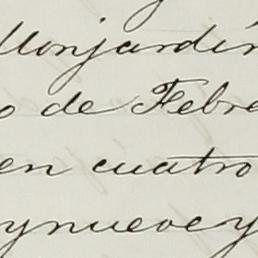 Monjardín
o de Febre
en cuatro
y nueve y